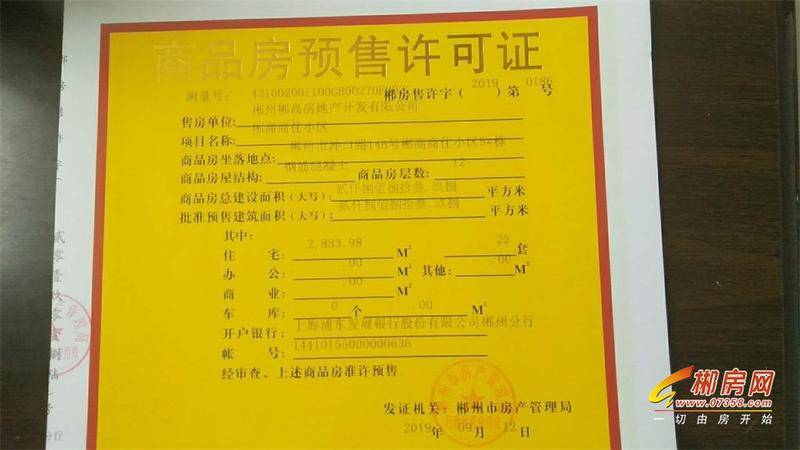 商品房预售许可证
测量号: 431002001100GB00270 郴房售许字(2019)第0186号
售房单位: 郴州郴高房地产开发有限公司
项目名称: 郴高商住小区
商品房坐落地点: 郴州市冲口路146号郴高商住小区5#栋
商品房屋结构: 钢筋混凝土 商品房层数: 12
商品房总建设面积(大写) 贰仟捌佰捌拾叁.玖捌 平方米
批准预售建筑面积(大写) 贰仟捌佰捌拾叁.玖捌 平方米
其中:
住 宅: 2,883.98 M² 22 套
办 公: .00 M² 其他: .00 M²
商 业: .00 M²
车 库: 0 个 .00 M²
开户银行: 上海浦东发展银行股份有限公司郴州分行
帐 号: 14410155000000636
经审查,上述商品房准许预售。
发证机关: 郴州市房产管理局
2019年 09月 12日
郴房网
www.07358.com
一切由房开始